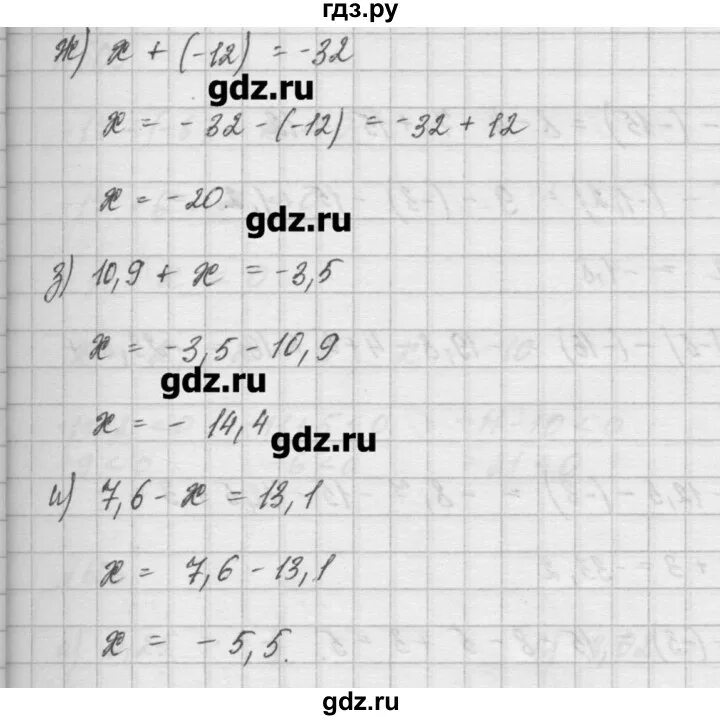 гдз.ру
ж) x + (-12) = -32
gdz.ru
x = - 32 - (-12) = -32 + 12
x = -20.
gdz.ru
з) 10,9 + x = -3,5
x = -3,5 - 10,9
gdz.ru
x = - 14,4
gdz.ru
и) 7,6 - x = 13,1
x = 7,6 - 13,1
x = - 5,5.
gdz.ru